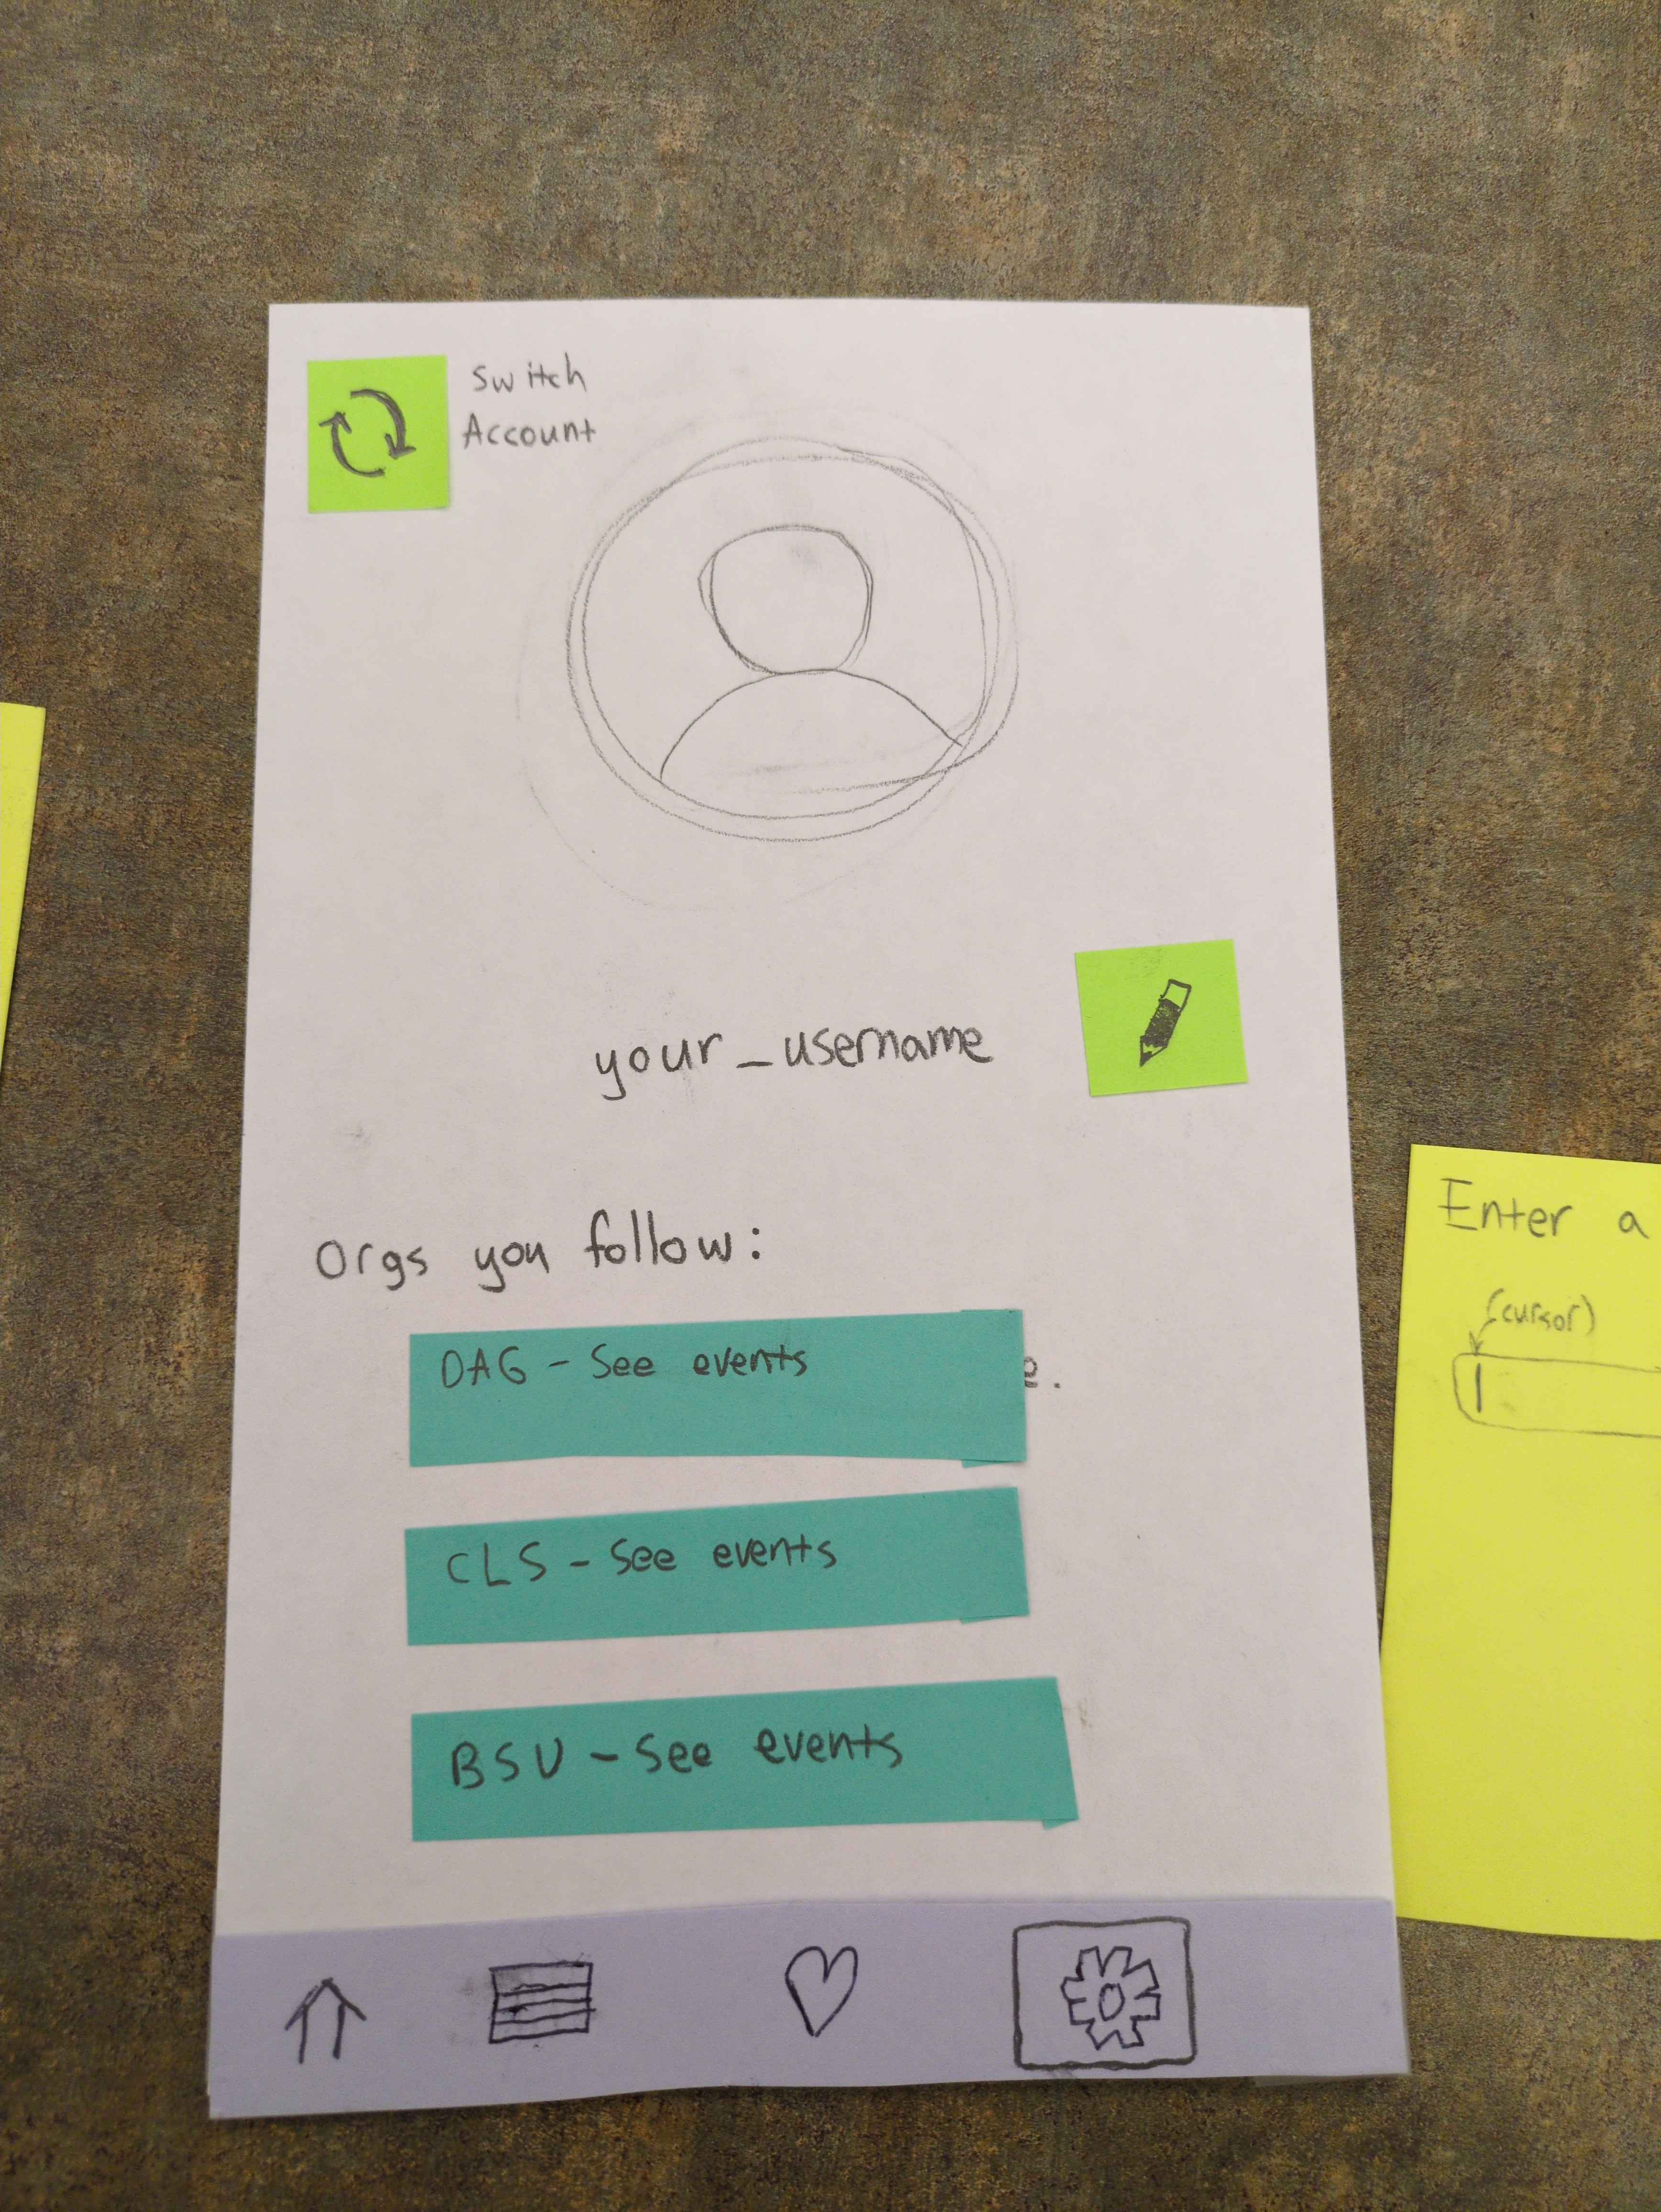 Switch
Account
your_username
Orgs you follow:
DAG - See events
CLS - See events
BSU - See events
Enter a
(cursor)